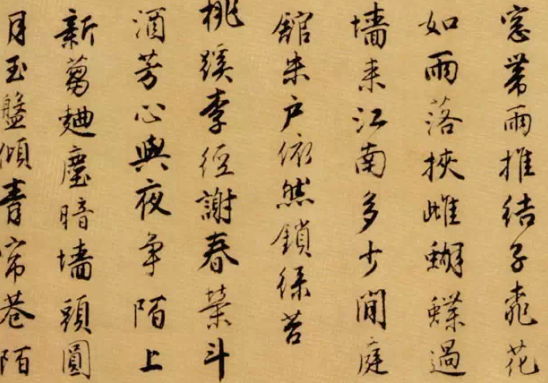 窓帶雨推結子桃花
如雨落挾雌蝴蝶過
墻來江南多少閒庭
館朱戶依然鎖綠苔
桃蹊李徑謝春榮斗
酒芳心與夜爭陌上
新蒭麯塵暗墻頭圓
月玉盤傾青帘巷陌